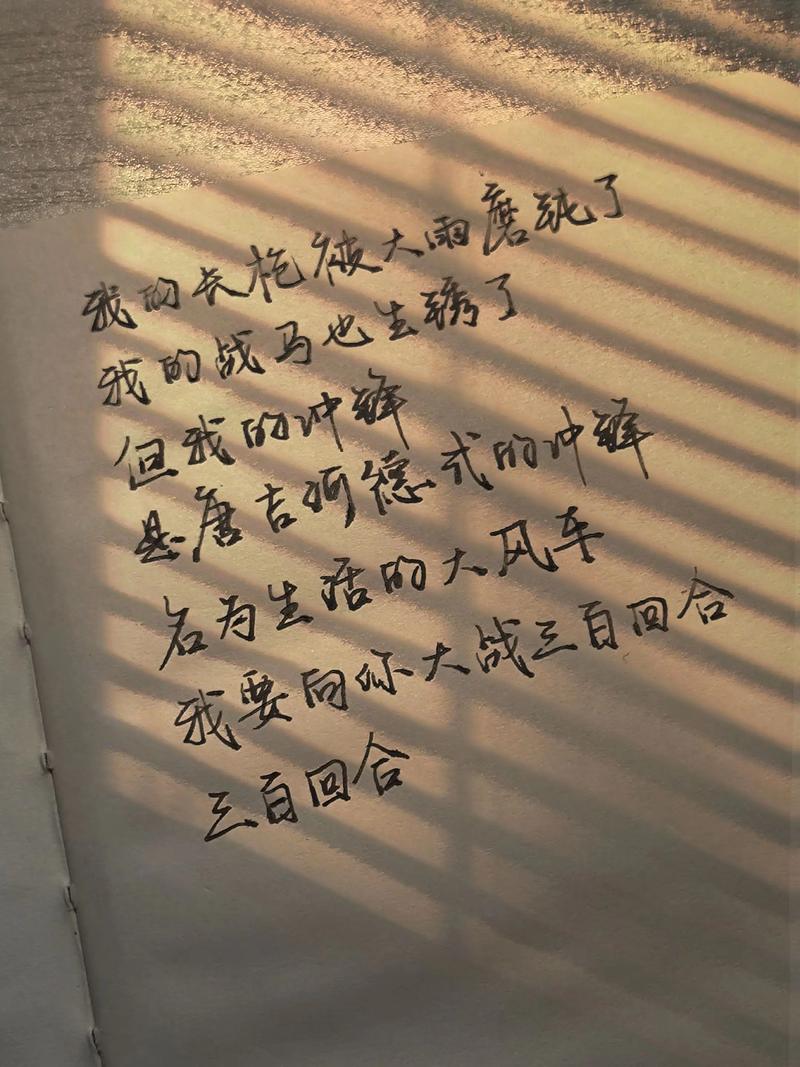 我的长枪被大雨磨钝了
我的战马也生锈了
但我的冲锋
是唐吉诃德式的冲锋
名为生活的大风车
我要向你大战三百回合
三百回合